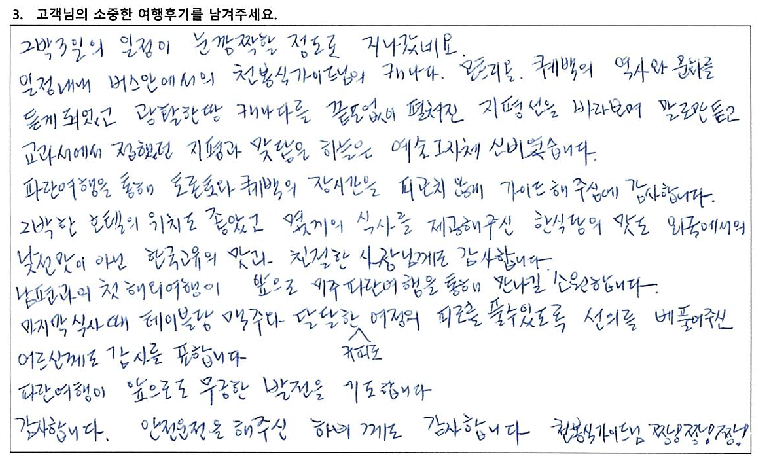 3. 고객님의 소중한 여행후기를 남겨주세요.
2박3일의 일정이 눈 깜짝할 정도로 지나갔네요.
일정내내 버스안에서의 천봉식가이드님의 캐나다. 몬트리올. 퀘백의 역사와 문화를
듣게되었고 광활한땅 캐나다를 끝도없이 펼쳐진 지평선을 바라보며 말로만 듣고
교과서에서 접했던 지평과 맞닿은 하늘은 예술그자체 신비였습니다.
파란여행을 통해 토론토와 퀘백의 장시간을 피곤치 않게 가이드해주심에 감사합니다.
2박한 호텔의 위치도 좋았고 몇끼의 식사를 제공해주신 한식당의 맛도 외국에서의
낯선맛이 아닌 한국고유의 맛과 친절한 사장님께도 감사합니다.
남편과의 첫해외여행이 앞으로 미주 파란여행을 통해 만나길 소원합니다.
마지막 식사때 테이블당 맥주와 달달한 커피로 여정의 피로를 풀수있도록 선의를 베풀어주신
어르신께도 감사를 표합니다
파란여행이 앞으로도 무궁한 발전을 기도합니다
감사합니다. 안전운전을 해주신 께도 감사합니다 천봉식가이드님 짱! 짱! 짱!